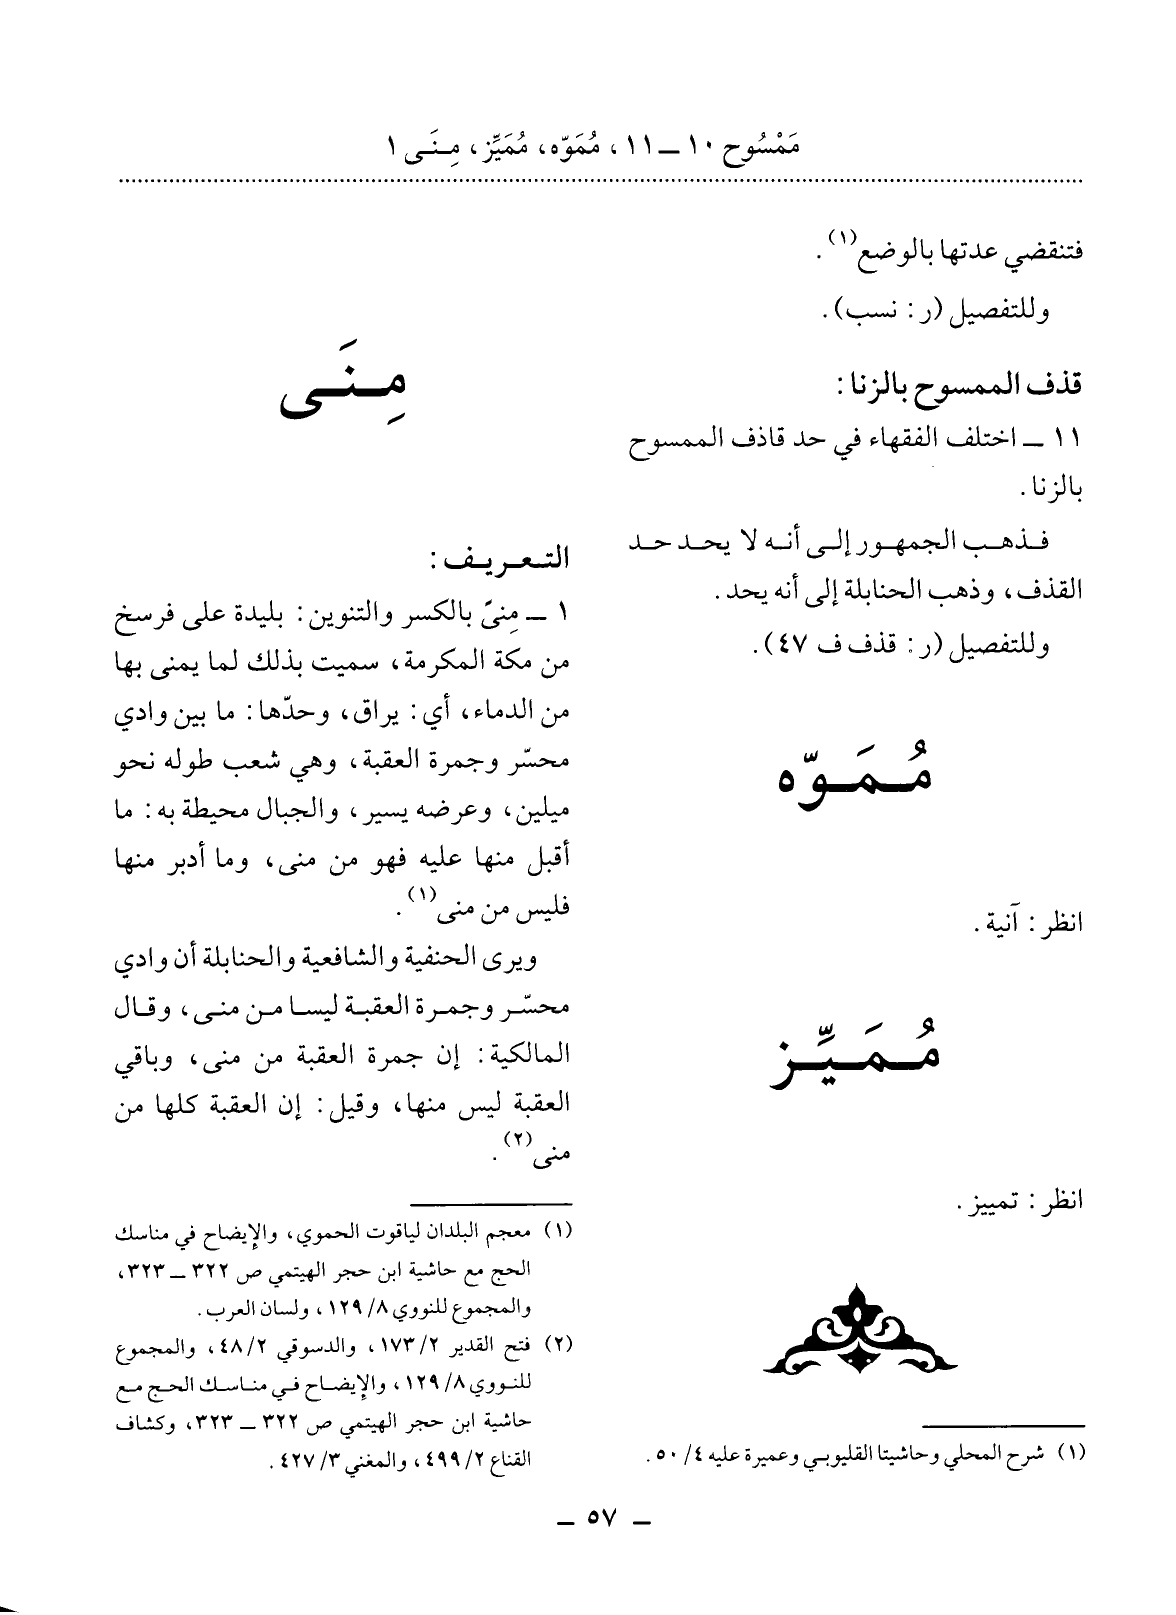 مَمْسُوح ١٠ ــ ١١، مُمَوّه، مُمَيِّز، مِـنَـى ١
فتنقضي عدتها بالوضع(١).
وللتفصيل (ر: نسب).
قذف الممسوح بالزنا:
١١ ــ اختلف الفقهاء في حد قاذف الممسوح
بالزنا.
فذهب الجمهور إلى أنه لا يحد حد
القذف، وذهب الحنابلة إلى أنه يحد.
وللتفصيل (ر: قذف ف ٤٧).
مُمَوّه
انظر: آنية.
مُمَيِّز
انظر: تمييز.
(١) شرح المحلي وحاشيتا القليوبي وعميرة عليه ٤/ ٥٠.
مِنَى
التعريف:
١ ــ مِنىً بالكسر والتنوين: بليدة على فرسخ
من مكة المكرمة، سميت بذلك لما يمنى بها
من الدماء، أي: يراق، وحدّها: ما بين وادي
محسّر وجمرة العقبة، وهي شعب طوله نحو
ميلين، وعرضه يسير، والجبال محيطة به: ما
أقبل منها عليه فهو من منى، وما أدبر منها
فليس من منى(١).
ويرى الحنفية والشافعية والحنابلة أن وادي
محسّر وجمرة العقبة ليسا من منى، وقال
المالكية: إن جمرة العقبة من منى، وباقي
العقبة ليس منها، وقيل: إن العقبة كلها من
منى(٢).
(١) معجم البلدان لياقوت الحموي، والإيضاح في مناسك
الحج مع حاشية ابن حجر الهيتمي ص ٣٢٢ ــ ٣٢٣،
والمجموع للنووي ٨/ ١٢٩، ولسان العرب.
(٢) فتح القدير ٢/ ١٧٣، والدسوقي ٢/ ٤٨، والمجموع
للنووي ٨/ ١٢٩، والإيضاح في مناسك الحج مع
حاشية ابن حجر الهيتمي ص ٣٢٢ ــ ٣٢٣، وكشاف
القناع ٢/ ٤٩٩، والمغني ٣/ ٤٢٧.
ــ ٥٧ ــ